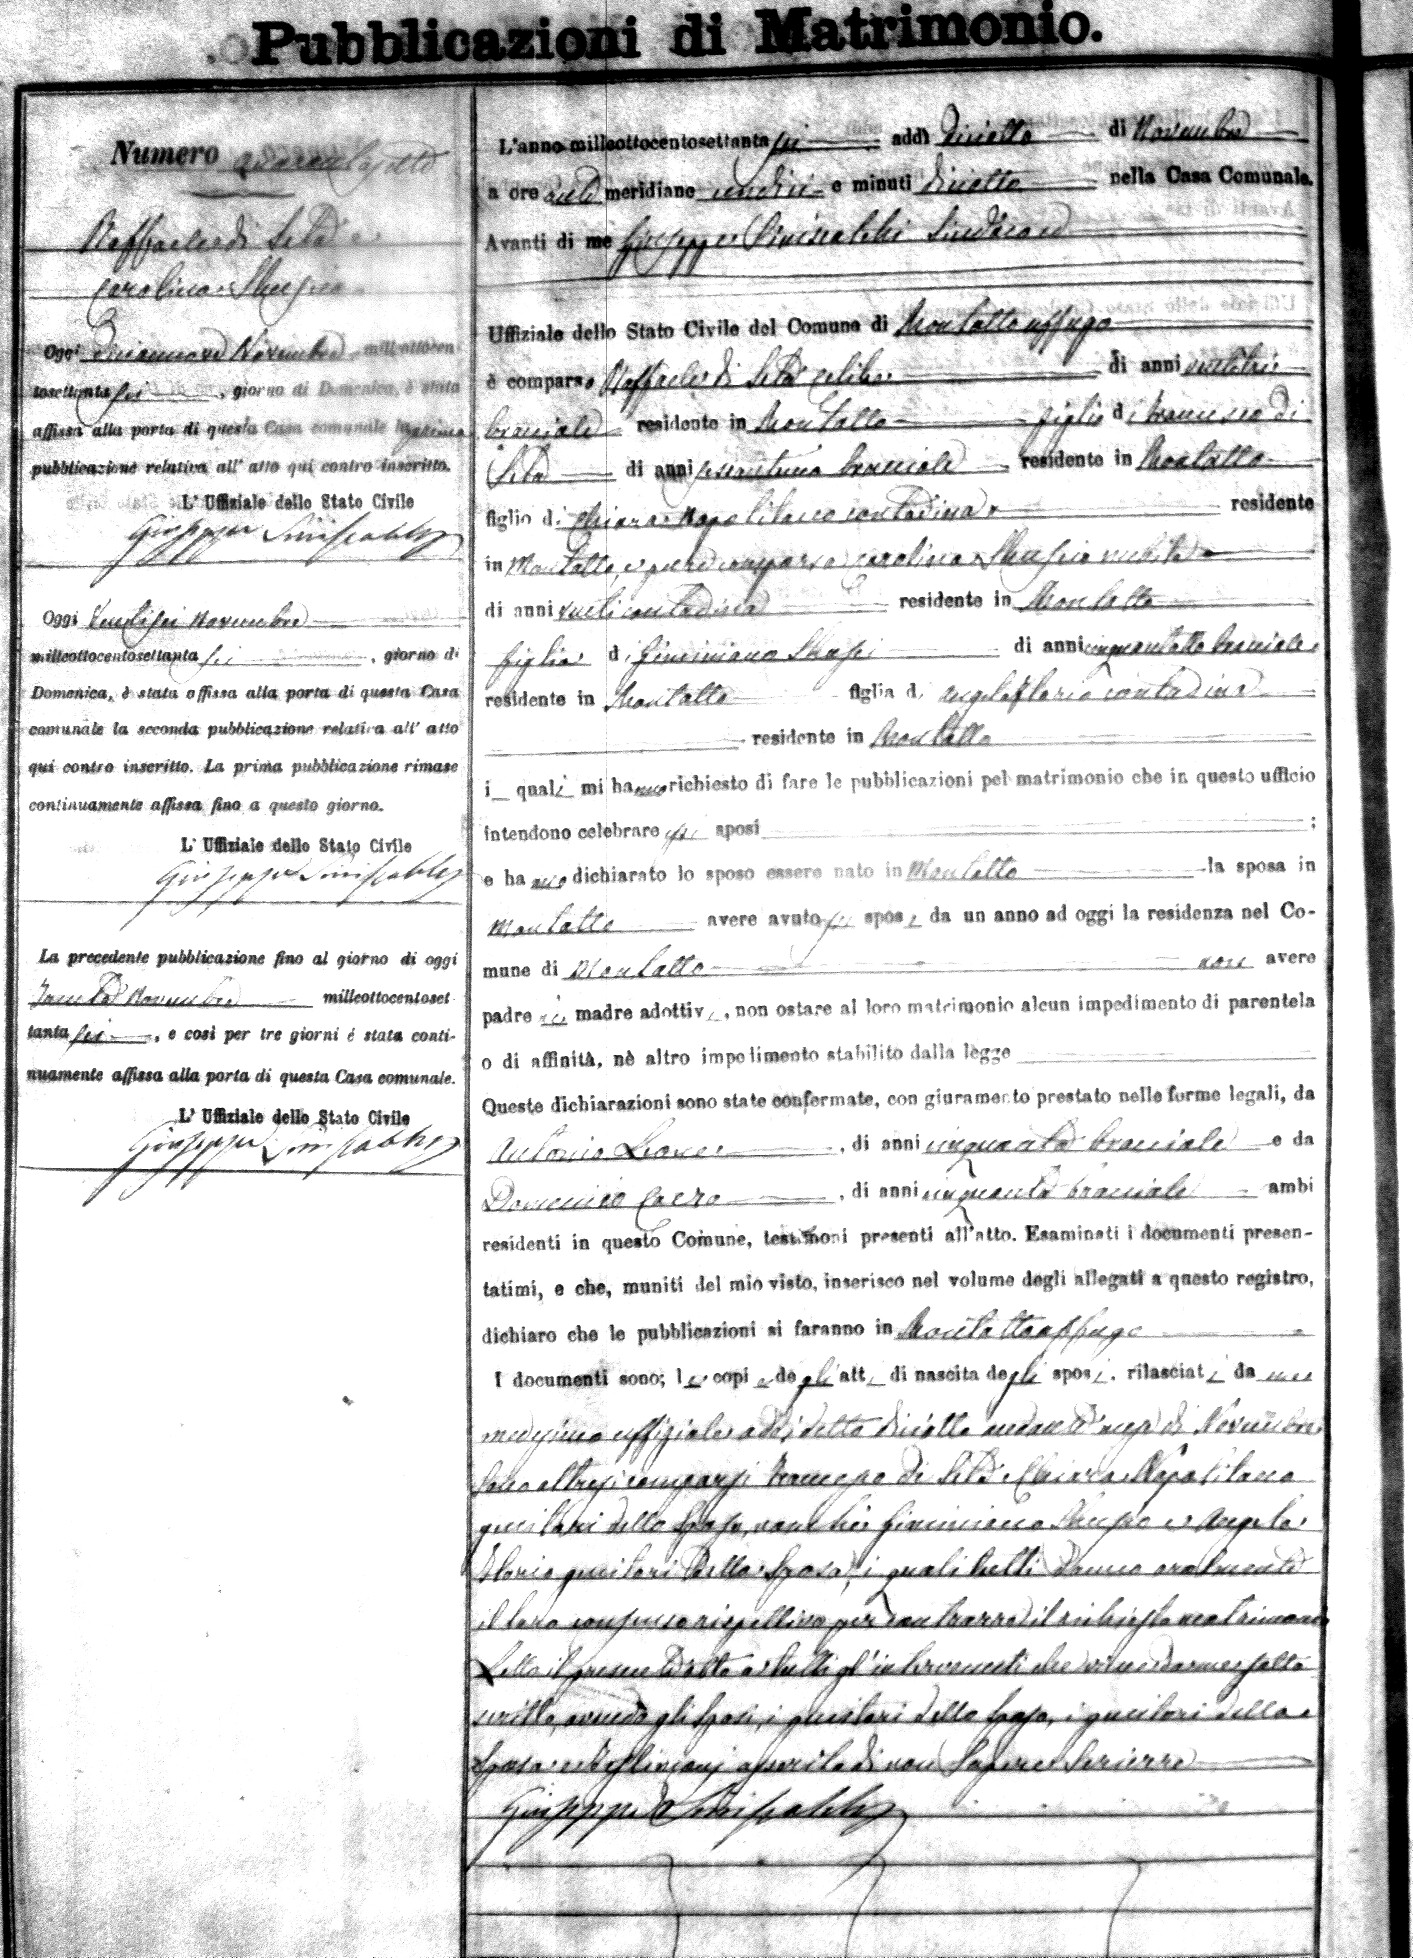 Pubblicazioni di Matrimonio.
Numero
Raffaele di Seta e
Carolina
Oggi diciannove Novembre milleottocen
tosettanta sei, giorno di Domenica, è stata
affissa alla porta di questa Casa comunale la prima
pubblicazione relativa all' atto qui contro inscritto.
L' Uffiziale dello Stato Civile
Giuseppe Siniscalchi
Oggi Ventisei Novembre
milleottocentosettanta sei, giorno di
Domenica, è stata affissa alla porta di questa Casa
comunale la seconda pubblicazione relativa all' atto
qui contro inscritto. La prima pubblicazione rimase
continuamente affissa fino a questo giorno.
L' Uffiziale dello Stato Civile
Giuseppe Siniscalchi
La precedente pubblicazione fino al giorno di oggi
trenta Novembre milleottocentoset
tanta sei, e così per tre giorni é stata conti-
nuamente affissa alla porta di questa Casa comunale.
L' Uffiziale dello Stato Civile
Giuseppe Siniscalchi
L'anno milleottocentosettanta sei addì diciotto di Novembre
a ore anti meridiane undici e minuti diciotto nella Casa Comunale.
Avanti di me Giuseppe Siniscalchi Sindaco
Uffiziale dello Stato Civile del Comune di Montaltouffugo
è comparso Raffaele di Seta celibe di anni ventitre
bracciale residente in Montalto figlio di Francesco di
Seta di anni sessantuno bracciale residente in Montalto
figlio di Chiara Napolitano contadina residente
in Montalto, e pure comparsa Carolina nubile
di anni venti contadina residente in Montalto
figlia di Giminiano di anni cinquantotto bracciale
residente in Montalto figlia d. Angela Florio contadina
residente in Montalto
i quali mi hanno richiesto di fare le pubblicazioni pel matrimonio che in questo ufficio
intendono celebrare essi sposi ;
e hanno dichiarato lo sposo essere nato in Montalto la sposa in
Montalto avere avuto gli sposi da un anno ad oggi la residenza nel Co-
mune di Montalto non avere
padre nè madre adottivi, non ostare al loro matrimonio alcun impedimento di parentela
o di affinità, nè altro impedimento stabilito dalla legge
Queste dichiarazioni sono state confermate, con giuramento prestato nelle forme legali, da
Antonio Leone, di anni cinquanta bracciale e da
Domenico, di anni cinquanta bracciale ambi
residenti in questo Comune, testimoni presenti all'atto. Esaminati i documenti presen-
tatimi, e che, muniti del mio visto, inserisco nel volume degli allegati a questo registro,
dichiaro che le pubblicazioni si faranno in Montaltouffugo
I documenti sono; le copie degli atti di nascita degli sposi, rilasciati da me
medesimo uffiziale addì detto diciotto andante mese di Novembre
sono altresì comparsi Francesco di Seta e Chiara Napolitano
genitori dello sposo, nonchè Giminiano e Angela
Florio genitori della sposa, i quali tutti danno oralmente
il loro consenso rispettivo per contrarre il richiesto matrimonio
Letto il presente atto a tutti gl'intervenuti che vi me solo
scritto, avendo gli sposi, i genitori dello sposo, i genitori della
sposa e i testimoni asserito di non sapere scrivere
Giuseppe Siniscalchi